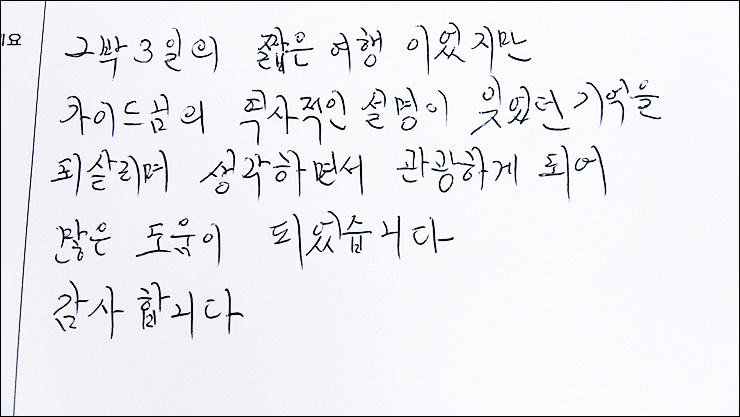 2박3일의 짧은 여행 이었지만
가이드분의 역사적인 설명이 잊었던 기억을
되살리며 생각하면서 관광하게 되어
많은 도움이 되었습니다
감사합니다